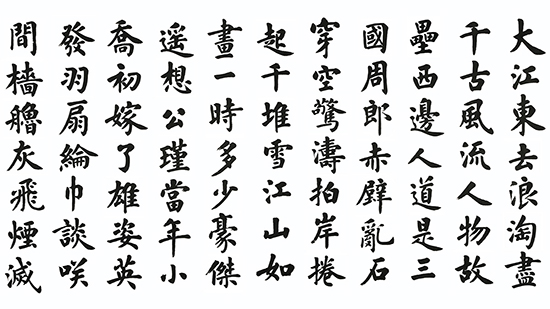 大江東去浪淘盡
千古風流人物故
壘西邊人道是三
國周郎赤壁亂石
穿空驚濤拍岸捲
起千堆雪江山如
畫一時多少豪傑
遥想公瑾當年小
喬初嫁了雄姿英
發羽扇綸巾談咲
間檣艣灰飛煙滅